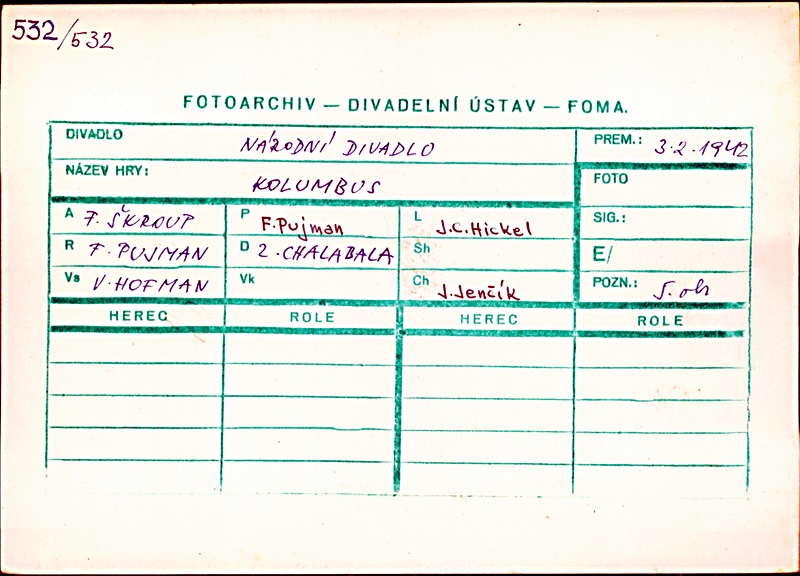 532/532
FOTOARCHIV — DIVADELNÍ ÚSTAV — FOMA.
DIVADLO NÁRODNÍ DIVADLO PREM.: 3.2.1942
NÁZEV HRY: KOLUMBUS FOTO
A F. ŠKROUP P F. Pujman L J.C. Hickel SIG.:
R F. PUJMAN D Z. CHALABALA Sh E/
Vs V. HOFMAN Vk Ch J. Jenčík POZN.: 5. obr
HEREC ROLE HEREC ROLE